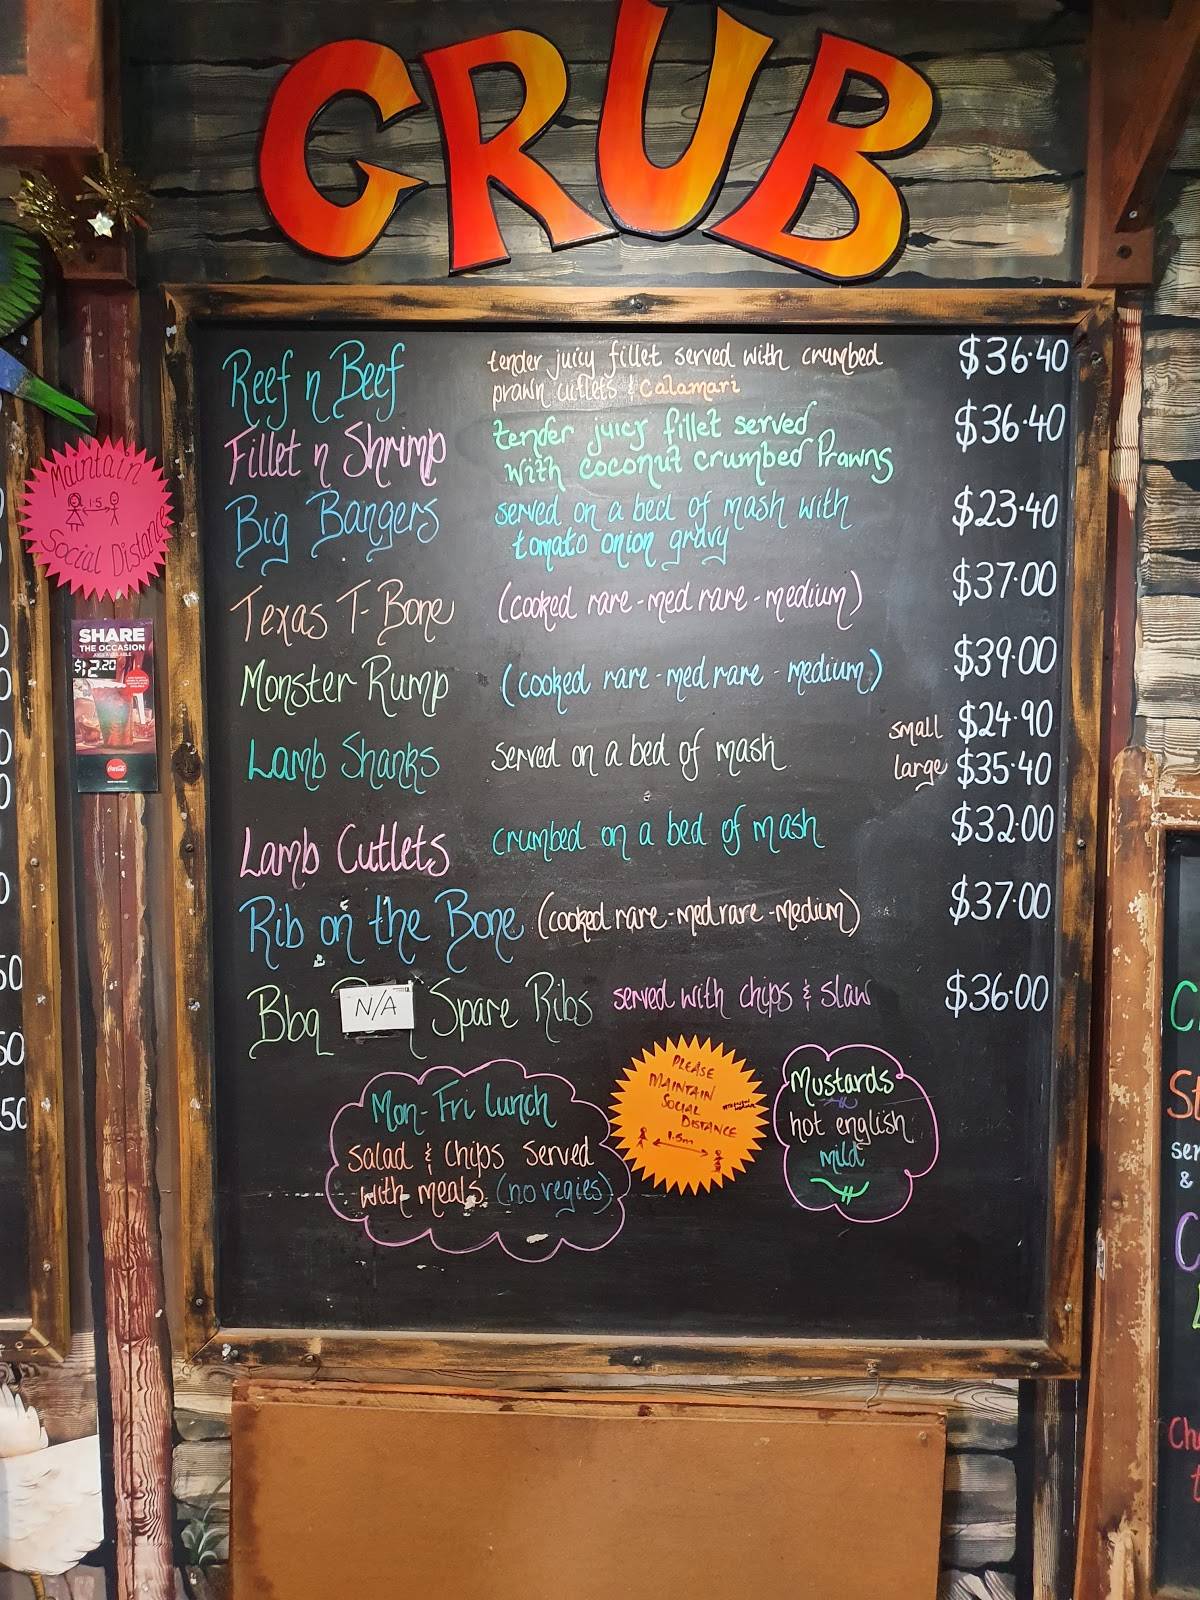 GRUB
Reef n Beef tender juicy fillet served with crumbed $36.40
prawn cutlets & calamari
Fillet n Shrimp tender juicy fillet served $36.40
with coconut crumbed Prawns
Big Bangers served on a bed of mash with $23.40
tomato onion gravy
Texas T-Bone (cooked rare-med rare-medium) $37.00
Monster Rump (cooked rare-med rare-medium) $39.00
small $24.90
Lamb Shanks served on a bed of mash
large $35.40
Lamb Cutlets crumbed on a bed of mash $32.00
Rib on the Bone (cooked rare-med rare-medium) $37.00
Bbq N/A Spare Ribs served with chips & slaw $36.00
Mon-Fri lunch
salad & chips served
with meals (no vegies)
PLEASE
MAINTAIN
SOCIAL
DISTANCE
1.5m
Mustards
hot english
mild
Maintain
1.5
Social Distance
SHARE
THE OCCASION
Coca-Cola
50
50
50
&